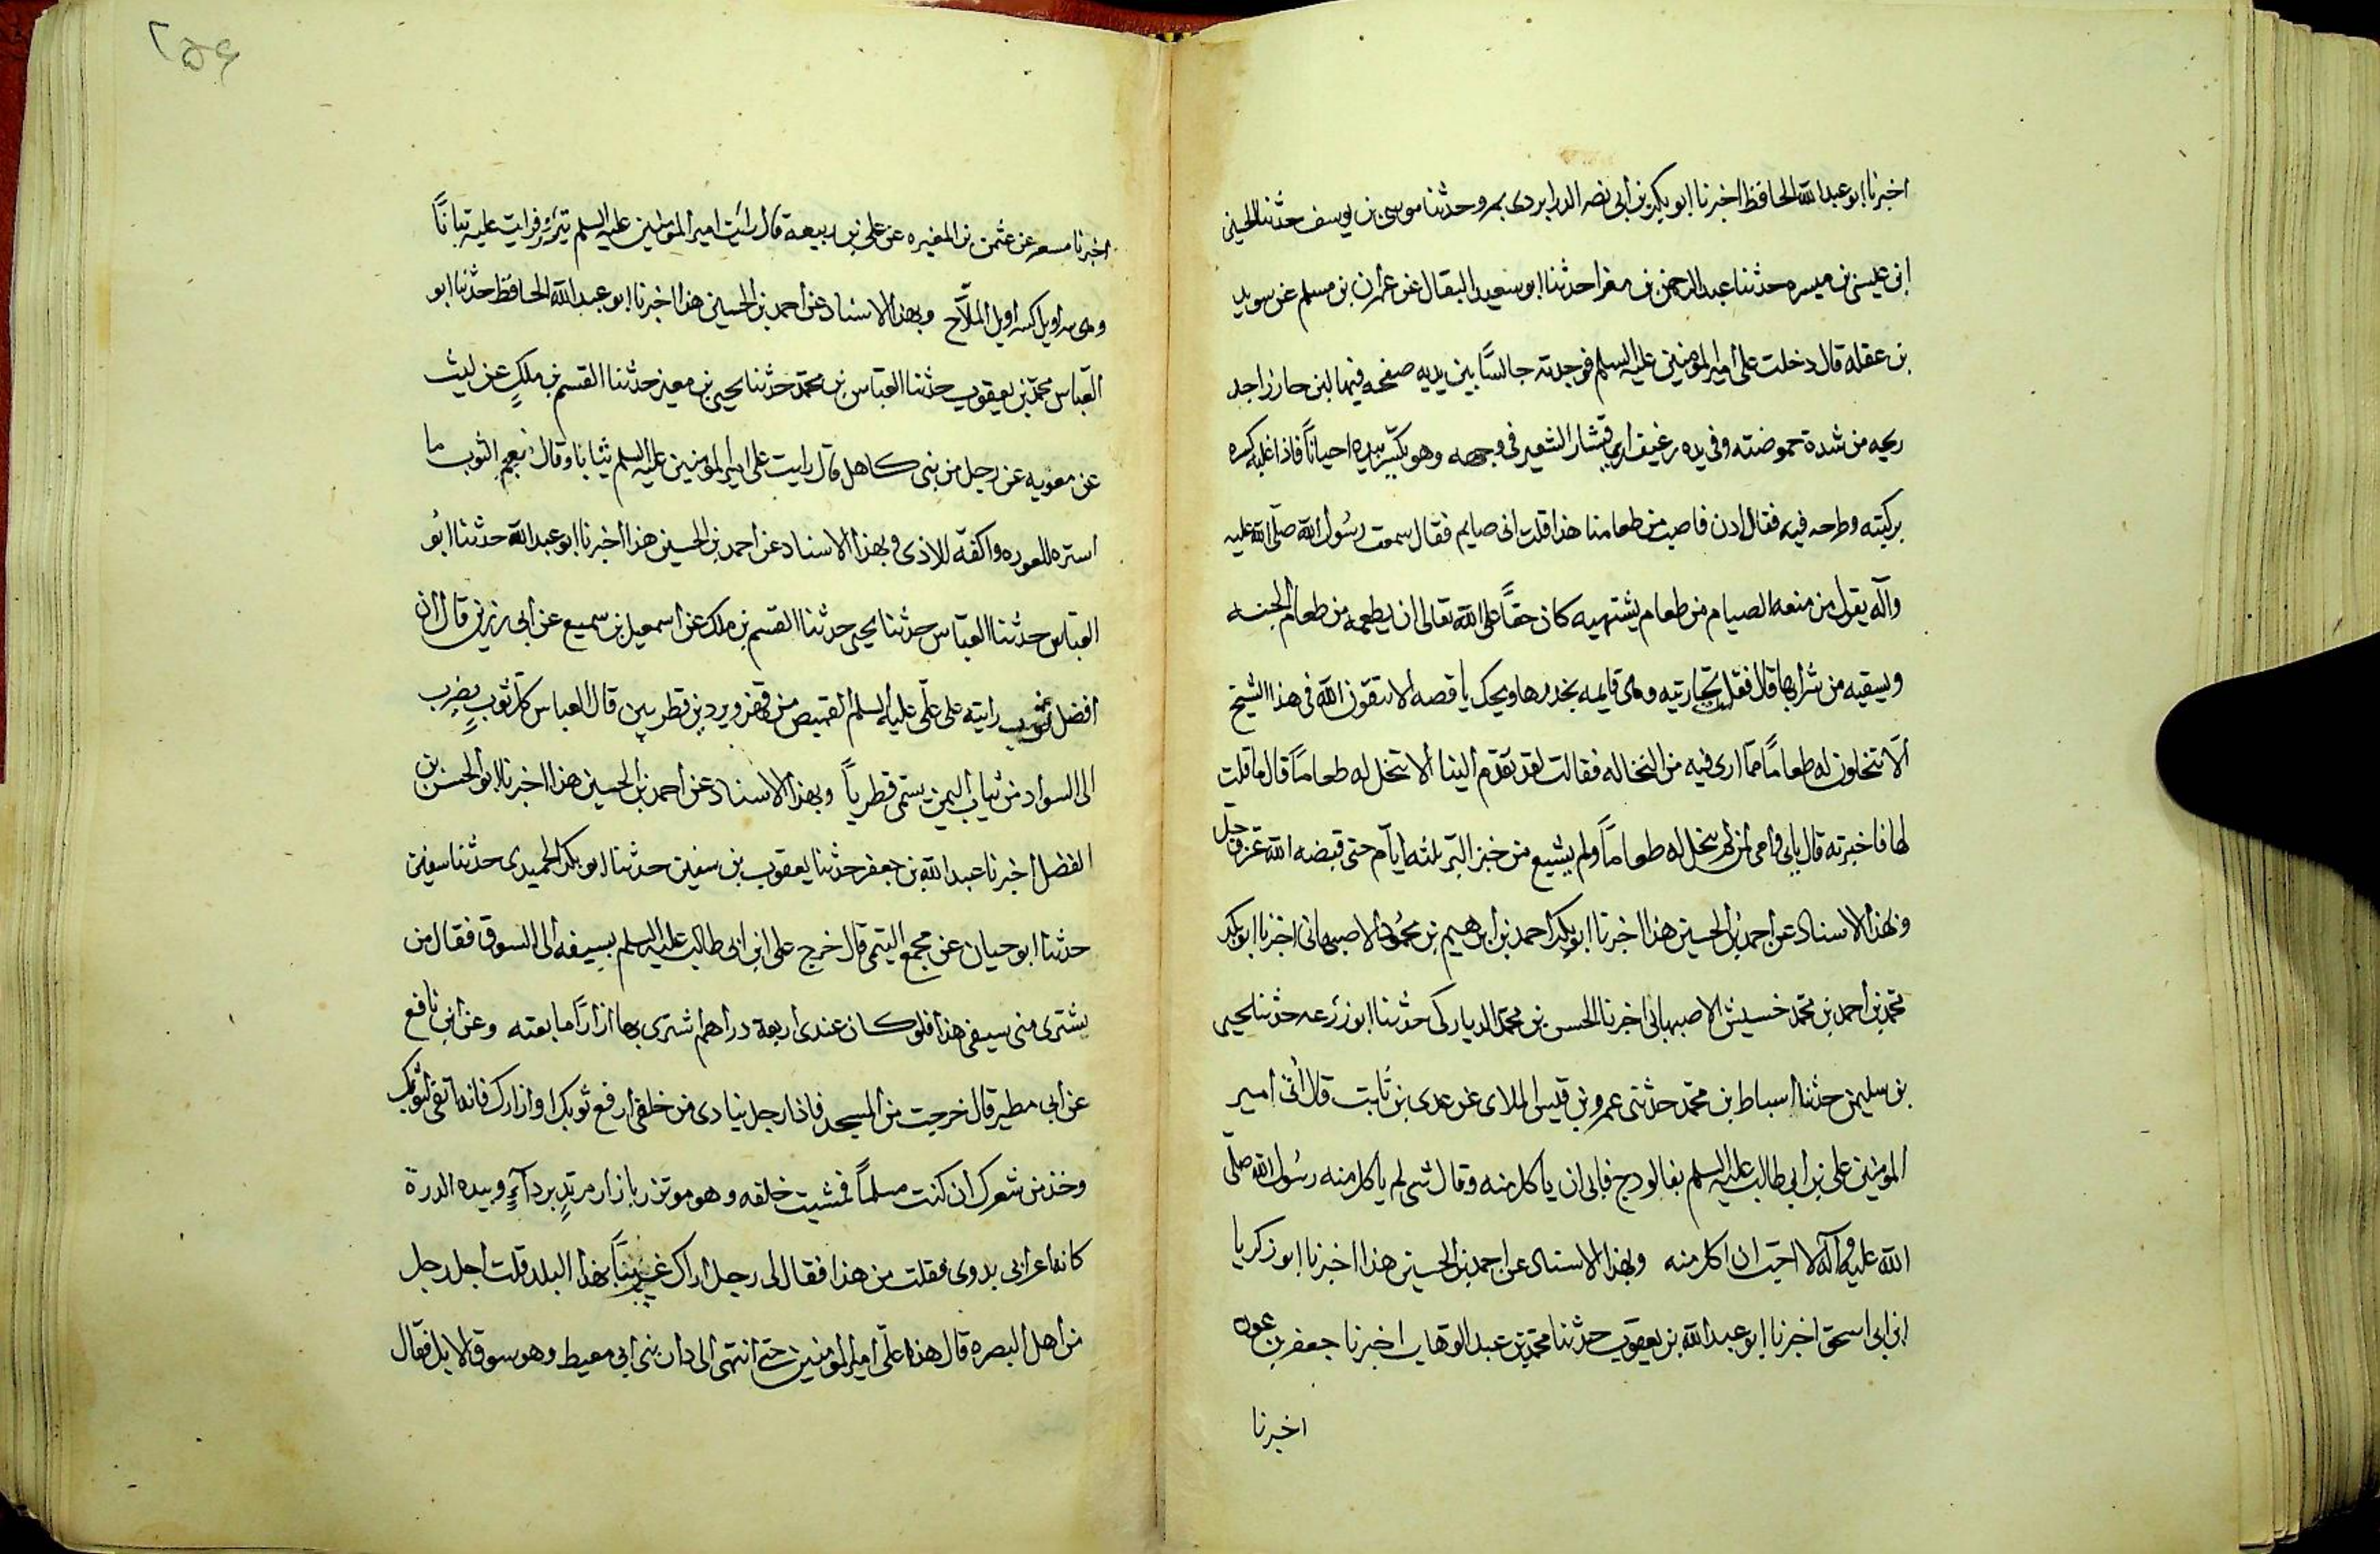 اخبرنا ابو عبد الله الحافظ اخبرنا ابو بكر بن ابى نصر الدرابردى بمرو حدثنا موسى بن يوسف حدثنا الحسين
ابن عيسى بن ميسره حدثنا عبد الرحمن بن مغرا حدثنا ابو سعيد البقال عن عمران بن مسلم عن سويد
بن عقله قال دخلت على امير المومنين عليه السلم فوجدته جالسًا بين يديه صفحه فيها لبن حازر اجد
ريحه من شدة حموضته وفى يده رغيف ارى قشار الشعير فى وجهه وهو يكسّر بيده احيانًا فاذا غلبه كسره
بركبته وطرحه فيه فقال ادن فاصب من طعامنا هذا قلت انى صايم فقال سمعت رسُول الله صلّى الله عليه
وآله يقول من منعه الصيام من طعام يشتهيه كان حقًّا على الله تعالى ان يطعمه من طعام الجنه
ويسقيه من شرابها قال فقلت لجاريته وهى قايمه بخدرها ويحك يا فضه الا تتقون الله فى هذا الشيخ
ألا تنخلون له طعامًا ممّا ارى فيه من النخاله فقالت لقد تقدّم الينا ألا ننخل له طعامًا قال ما قلت
لها فاخبرته قال بابى وامى من لم ينخل له طعامًا ولم يشبع من خبز البر ثلثه ايّام حتى قبضه الله عز وجل
وبهذا الاسناد عن احمد بن الحسين هذا اخبرنا ابو بكر احمد بن ابرهيم بن محمُود الاصبهانى اخبرنا ابو بكر
محمّد بن احمد بن محمّد خسيش الاصبهانى اخبرنا الحسن بن محمّد الدياركى حدّثنا ابو زرعه حدثنا يحيى
بن سليمن حدثنا اسباط بن محمّد حدثنى عمرو بن قيس الملاى عن عدى بن ثابت قال اتى امير
المومنين على بن ابى طالب عليه السلم بفالودج فابى ان ياكل منه وقال شى لم ياكل منه رسُول الله صلّى
الله عليه وآله لا احبّ ان اكل منه وبهذا الاسناد عن احمد بن الحسين هذا اخبرنا ابو زكريا
ابن ابى اسحق اخبرنا ابو عبد الله بن يعقوب حدثنا محمّد بن عبد الوهّاب اخبرنا جعفر بن عون
اخبرنا
۲۵۶
اخبرنا مسعر عن عثمن بن المغيره عن على بن ربيعة قال رايت امير المومنين عليه السلم يتزر فرايت عليه تبانًا
وهى سراويل كسراويل الملّاح وبهذا الاسناد عن احمد بن الحسين هذا اخبرنا ابو عبد الله الحافظ حدّثنا ابو
العبّاس محمّد بن يعقوب حدثنا العبّاس بن محمّد حدثنا يحيى بن معين حدثنا القسم بن ملكٍ عن ليث
عن معويه عن رجل من بنى كاهل قال رايت على امير المومنين عليه السلم تبّانا وقال نعم الثوب ما
استره للعوره واكفّه للاذى وبهذا الاسناد عن احمد بن الحسين هذا اخبرنا ابو عبد الله حدثنا ابُو
العبّاس حدثنا العبّاس حدثنا يحيى حدثنا القسم بن ملك عن اسمعيل بن سميع عن ابى رزين قال ان
افضل ثوب رايته على علّى عليه السلم القميص من قهز وبردين قطريين قال العباس كلّ ثوب يضرب
الى السواد من ثياب اليمن يسمّى قطريًا وبهذا الاسناد عن احمد بن الحسين هذا اخبرنا ابو الحسن بن
الفضل اخبرنا عبد الله بن جعفر حدثنا يعقوب بن سفين حدثنا ابو بكر الحميدى حدثنا سفين
حدثنا ابو حيان عن مجمع التيمى قال خرج على ابن ابى طالب عليه السلم بسيفه الى السوق فقال من
يشترى منى سيفى هذا فلو كان عندى اربعة دراهم اشترى بها ازارًا ما بعته وعن ابن نافع
عن ابى مطير قال خرجت من المسجد فاذا رجل ينادى من خلفى ارفع ثوبك او ازارك فانه اتقى لثوبك
وخذ من شعرك ان كنت مسلمًا فمشيت خلفه وهو موتزر بازار مرتدٍ بردآءٍ وبيده الدرة
كانه اعرابى بدوى فقلت من هذا فقال لى رجل اراك غريبًا بهذا البلد قلت اجل رجل
من اهل البصره قال هذا علّى امير المومنين حتى انتهى الى دار بنى ابى معيط وهو سوق الابل فقال